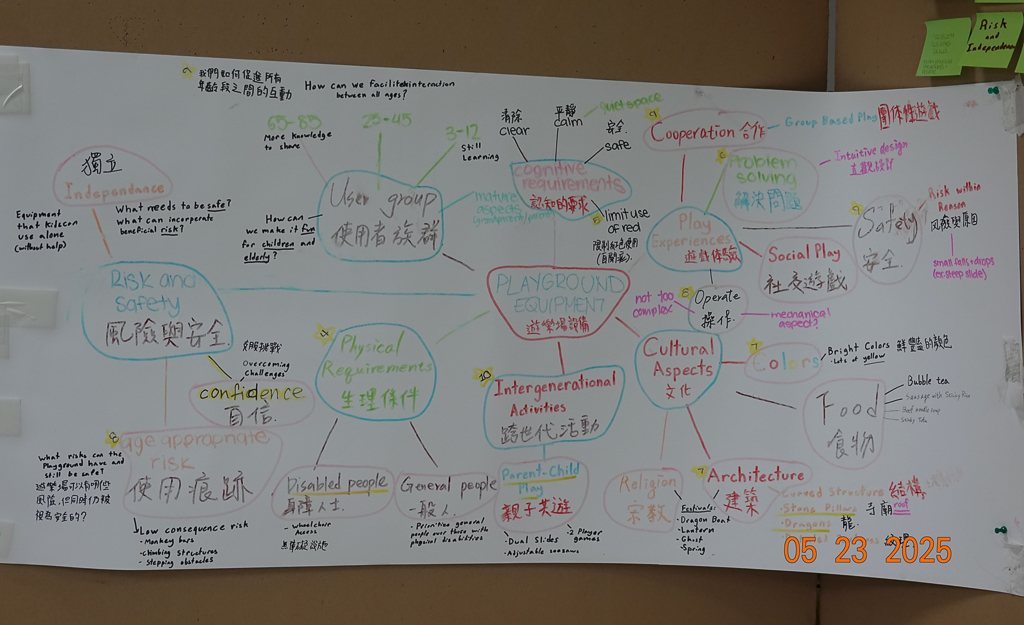 Risk
and
Independence
我們如何促進所有
年齡段之間的互動
How can we facilitedeinteraction
between all ages?
65-85
More Knowledge
to share
25-45
3-12
Still
Learning
User group
使用者族群
How can
we make it fun
for children and
elderly?
mature
aspects
清除
clear
平靜
calm
quiet space
安全
safe
cognitive
requirements
認知的要求
limit use
of red
Cooperation 合作
Group Based Play
團体性遊戲
Problem
solving
解決問題
Intuitive design
直觀設計
Play
Experiences
遊戲体驗
Safety
安全
Risk within
Reason
風險與原因
small falls+drops
(ex. steep slide)
Social Play
社交遊戲
Operate
操作
not too
complex
mechanical
aspect?
獨立
Indapendance
Equipment
that kids can
use alone
(without help)
What needs to be safe?
What can incorperate
beneficial risk?
Risk and
safety
風險與安全
PLAYGROUND
EQUIPMENT
遊樂場設備
克服挑戰
Overcoming
Challenges
confidence
自信
8
age appropriate
risk
使用痕跡
What risks can the
Playground have and
still be safe?
Low consequence risk
- Monkey bars
- climbing structures
- Stepping obstacles
4
Physical
Requirements
生理條件
Disabled people
身障人士
- Wheelchair
Access
General people
一般人
- Prioritize general
people over those with
physical disabilities
10
Intergenerational
Activities
跨世代活動
Parent-Child
Play
親子共遊
- Dual Slides
- Adjustable seesaws
2 Player
games
Cultural
Aspects
文化
7
Colors
Bright Colors 鮮豔的顏色
- Lots of yellow
Food
食物
Bubble tea
Sausage with Sticky Rice
Beef noodle soup
Religion
宗教
Festivals
- Dragon Boat
- Lantern
- Ghost
- Spring
7
Architecture
建築
Curved Structure 結構
roof
- Stone Pillars 寺廟
- Dragons 龍
05 23 2025